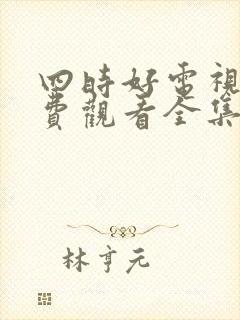 四時好電視
費觀看全集
林亨元